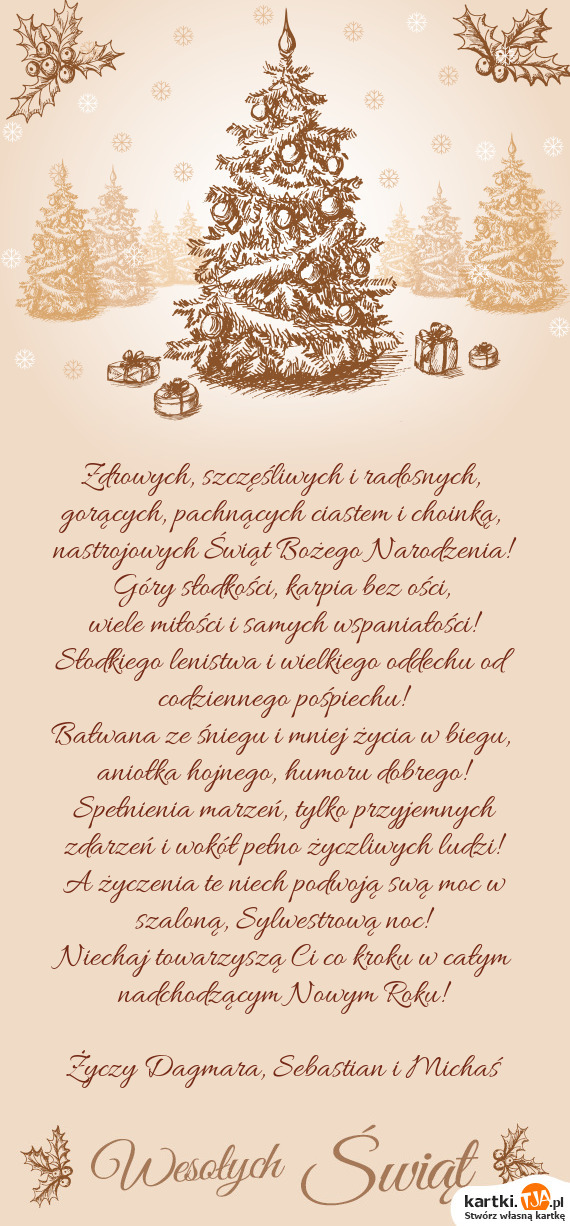 Zdrowych, szczęśliwych i radosnych,
gorących, pachnących ciastem i choinką,
nastrojowych Świąt Bożego Narodzenia!
Góry słodkości, karpia bez ości,
wiele miłości i samych wspaniałości!
Słodkiego lenistwa i wielkiego oddechu od
codziennego pośpiechu!
Bałwana ze śniegu i mniej życia w biegu,
aniołka hojnego, humoru dobrego!
Spełnienia marzeń, tylko przyjemnych
zdarzeń i wokół pełno życzliwych ludzi!
A życzenia te niech podwoją swą moc w
szaloną, Sylwestrową noc!
Niechaj towarzyszą Ci co kroku w całym
nadchodzącym Nowym Roku!
Życzy Dagmara, Sebastian i Michaś
Wesołych Świąt
kartki.TJA.pl
Stwórz własną kartkę